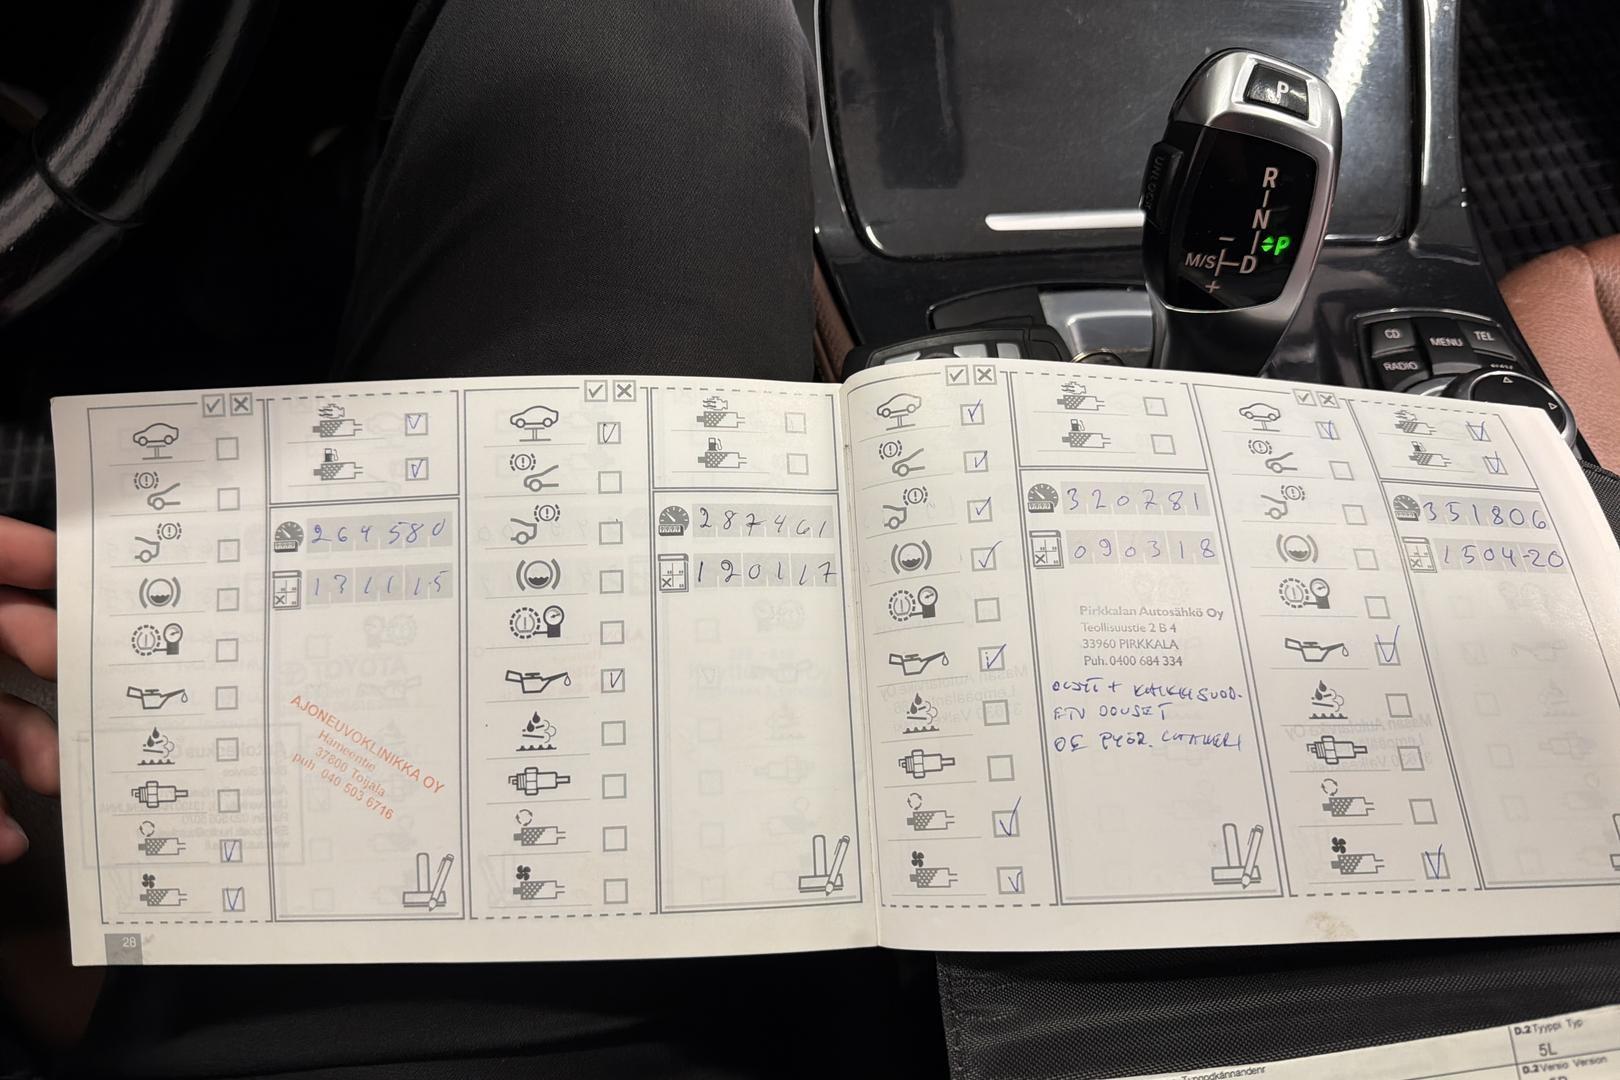 P
UNLOCK
R
N
P
M/S
D
−
+
CD
MENU
TEL
RADIO
264580
131115
AJONEUVOKLINIKKA OY
Hämeentie
37800 Toijala
puh. 040 503 6716
28
287461
120117
320781
090318
Pirkkalan Autosähkö Oy
Teollisuustie 2 B 4
33960 PIRKKALA
Puh. 0400 684 334
ETU
OE PYÖR.
351806
150420
D.2 Tyyppi Typ
5L
D.2 Versio Version